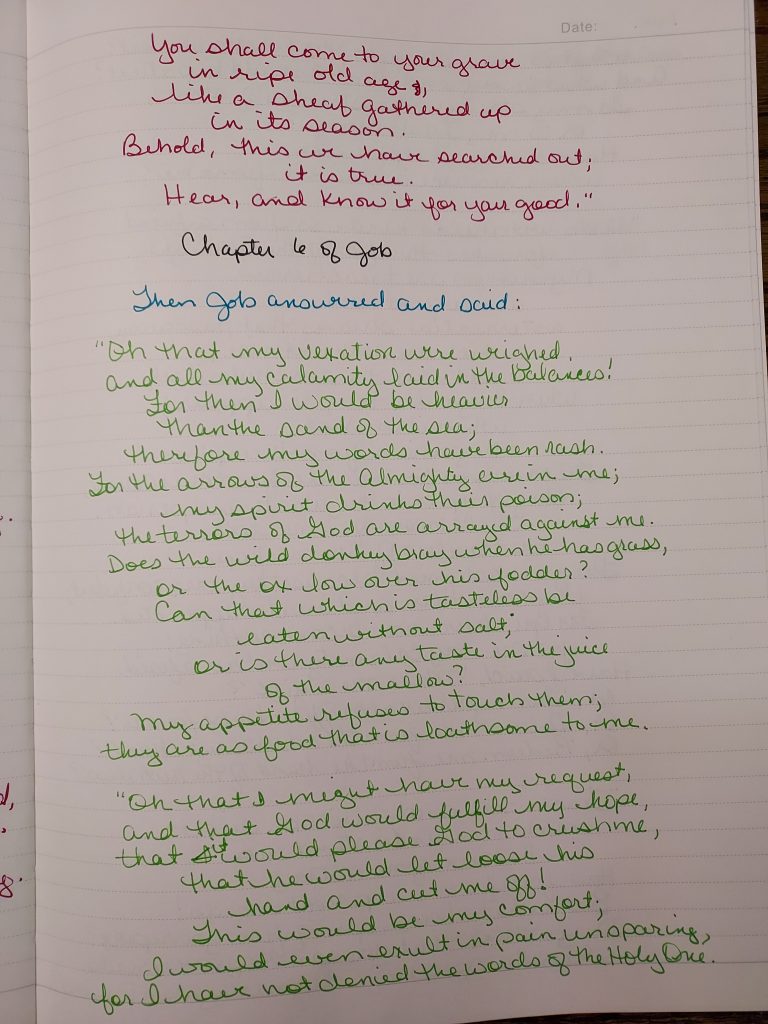 Date:
You shall come to your grave
in ripe old age,
like a sheaf gathered up
in its season.
Behold, this we have searched out;
it is true.
Hear, and know it for your good."
Chapter 6 of Job
Then Job answered and said:
"Oh that my vexation were weighed,
and all my calamity laid in the balances!
For then I would be heavier
than the sand of the sea;
therefore my words have been rash.
For the arrows of the Almighty are in me;
my spirit drinks their poison;
the terrors of God are arrayed against me.
Does the wild donkey bray when he has grass,
or the ox low over his fodder?
Can that which is tasteless be
eaten without salt,
or is there any taste in the juice
of the mallow?
My appetite refuses to touch them;
they are as food that is loathsome to me.
"Oh that I might have my request,
and that God would fulfill my hope,
that it would please God to crush me,
that he would let loose his
hand and cut me off!
This would be my comfort;
I would even exult in pain unsparing,
for I have not denied the words of the Holy One.